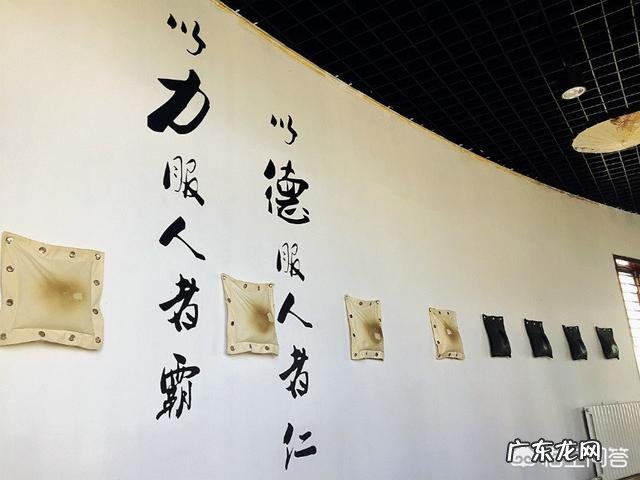 以力服人者霸
以德服人者仁
广东龙网
悟空问答